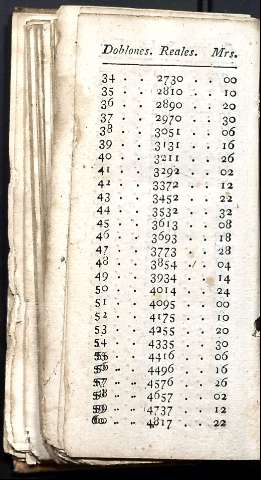 Doblones. Reales. Mrs.
34 . . 2730 . . 00
35 . . 2810 . . 10
36 . . 2890 . . 20
37 . . 2970 . . 30
38 . . 3051 . . 06
39 . . 3131 . . 16
40 . . 3211 . . 26
41 . . 3292 . . 02
42 . . 3372 . . 12
43 . . 3452 . . 22
44 . . 3532 . . 32
45 . . 3613 . . 08
46 . . 3693 . . 18
47 . . 3773 . . 28
48 . . 3854 . . 04
49 . . 3934 . . 14
50 . . 4014 . . 24
51 . . 4095 . . 00
52 . . 4175 . . 10
53 . . 4255 . . 20
54 . . 4335 . . 30
55 . . 4416 . . 06
56 . . 4496 . . 16
57 . . 4576 . . 26
58 . . 4657 . . 02
59 . . 4737 . . 12
60 . . 4817 . . 22